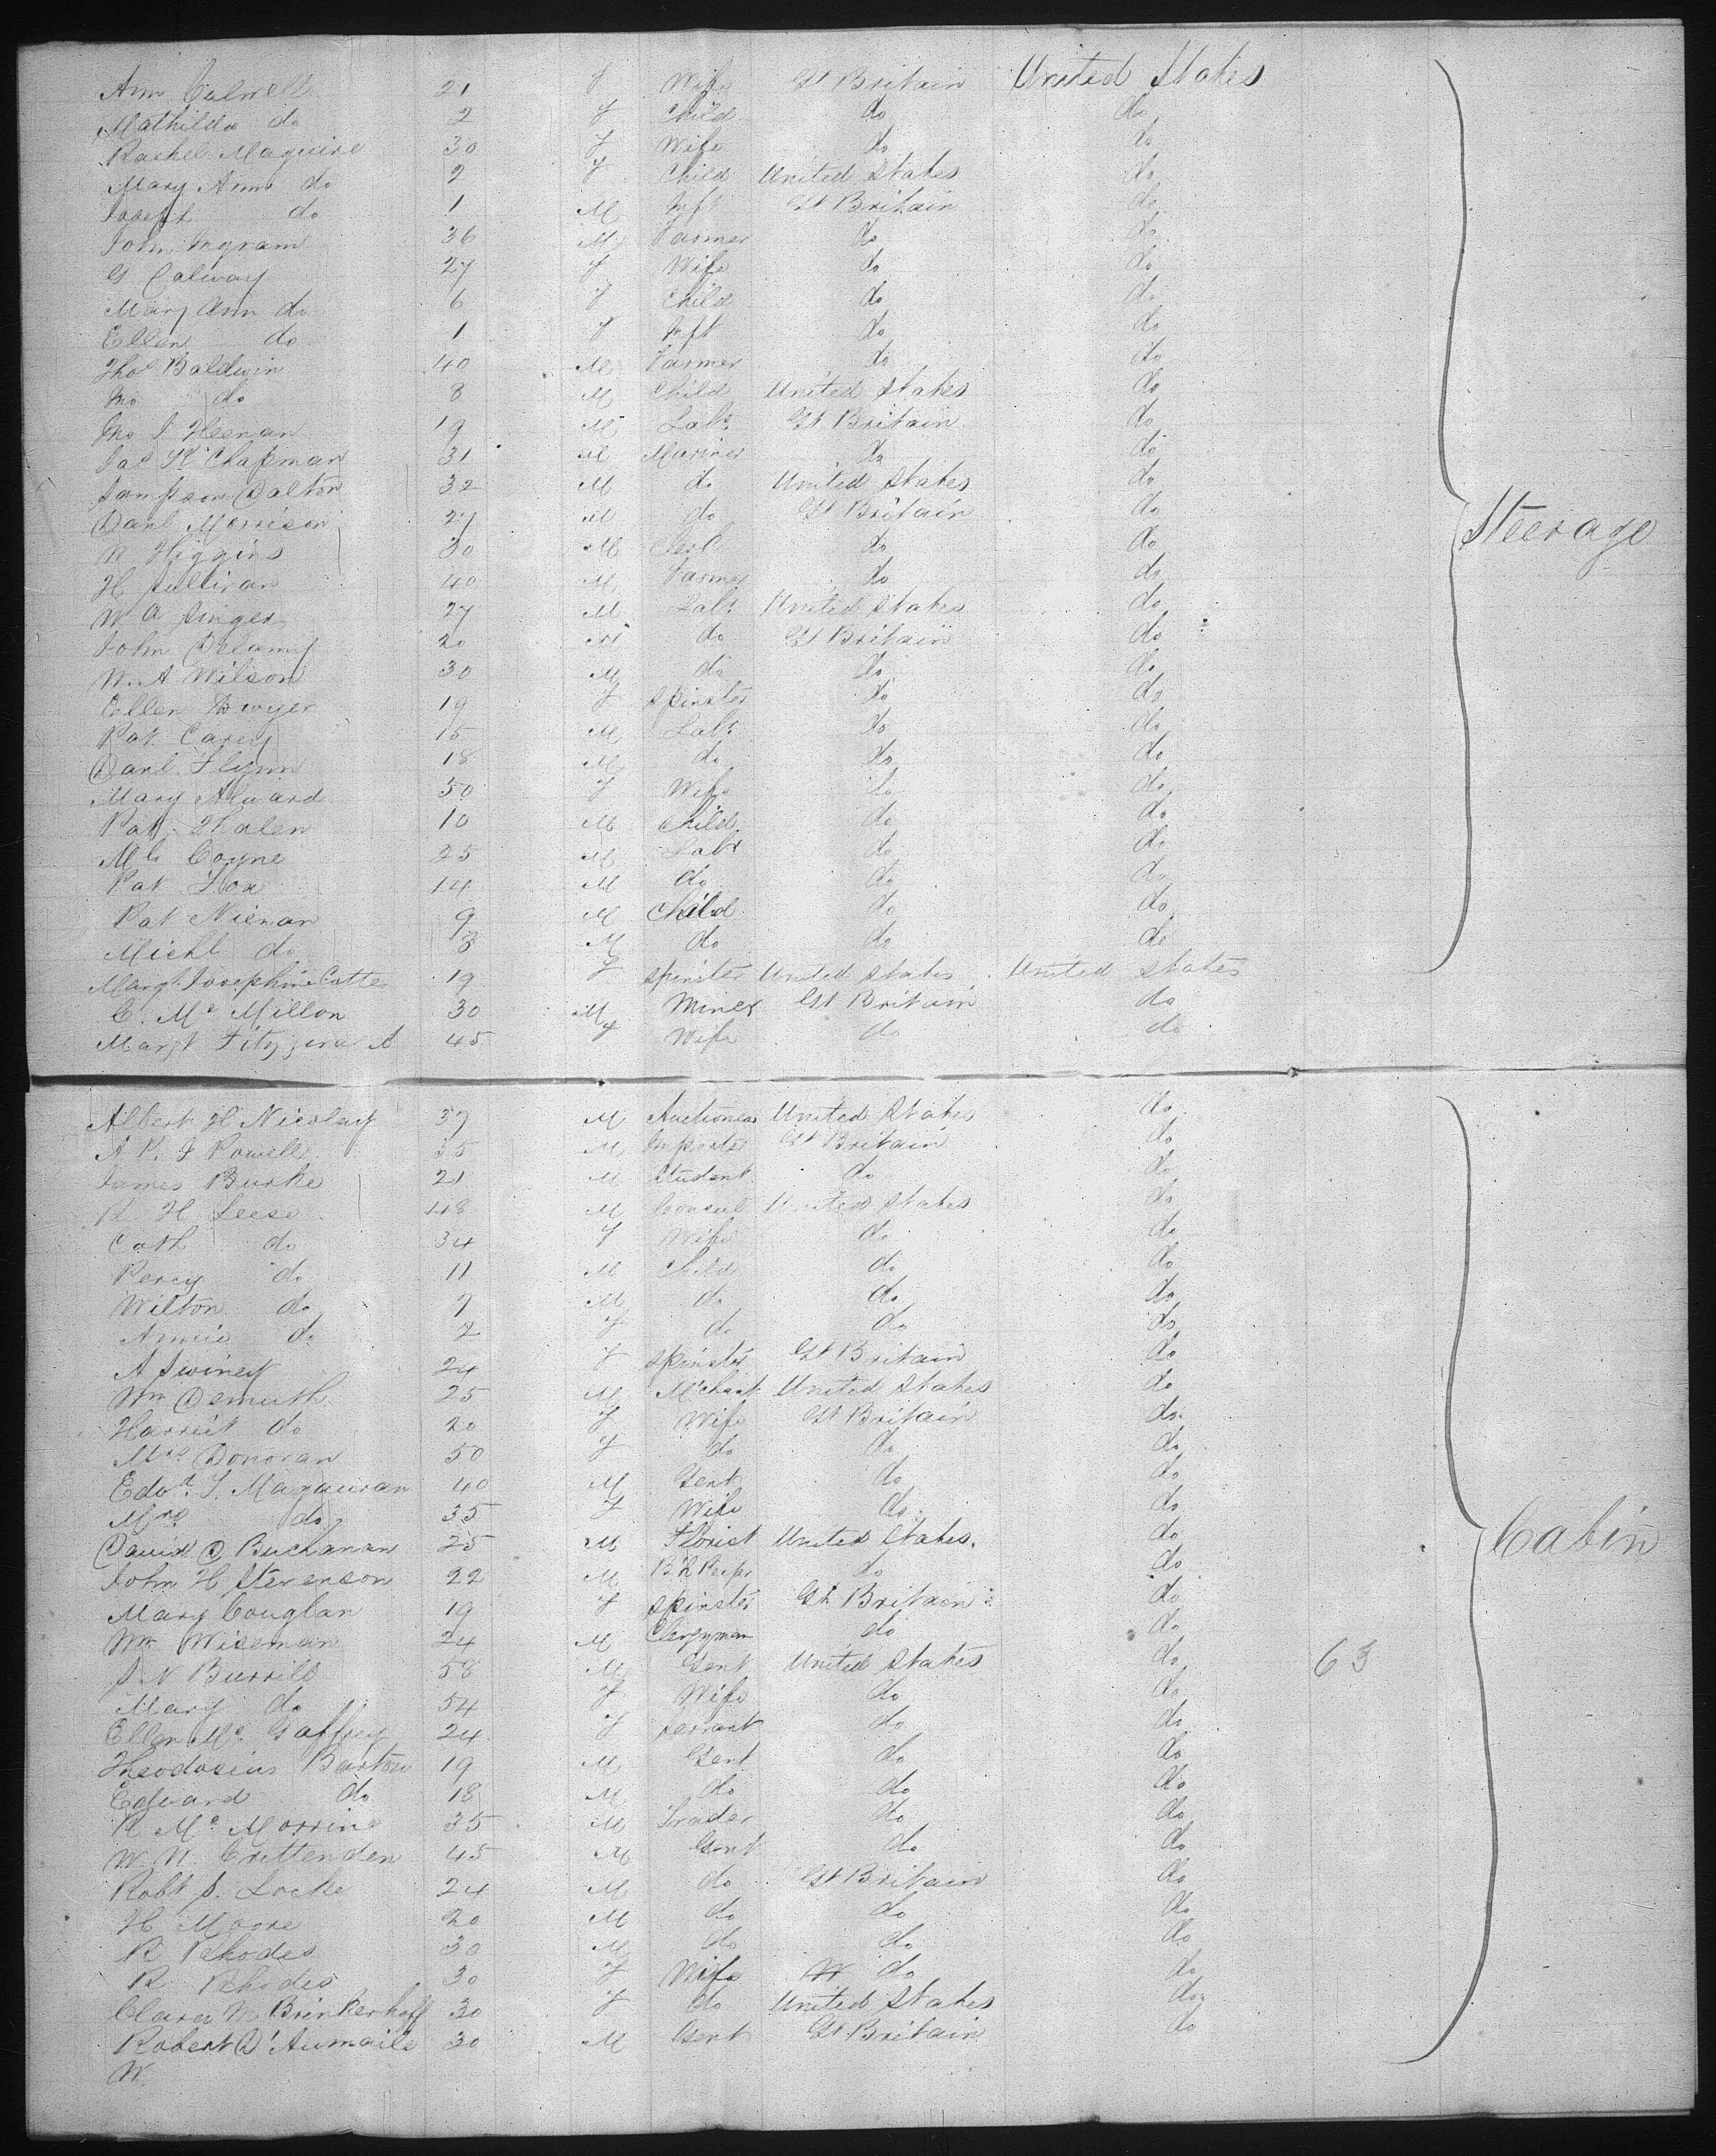 Ann Calwell 21 f Wife Gt Britain United States
Mathilda do 2 f Child do do
Rachel Maguire 30 f Wife do do
Mary Ann do 2 f Child United States do
Joseph do 1 M Inft Gt Britain do
John Ingram 36 M Farmer do do
G Calway 27 f Wife do do
Mary Ann do 6 f Child do do
Ellen do 1 f Inft do do
Thos Baldwin 40 M Farmer do do
Jno do 8 M Child United States do
Jno J Heenan 19 M Labr Gt Britain do
Jas Chapman 31 M Mariner do do
Sampson Dalton 32 M do United States do
Danl Morrison 27 M do Gt Britain do
Steerage
W Higgins 30 M Clerk do do
H Sullivan 40 M Farmer do do
W A Singer 27 M Labr United States do
John Delamy 20 M do Gt Britain do
W. A Wilson 30 M do do do
Ellen Dwyer 19 f Spinster do do
Pat Carey 15 M Labr do do
Danl Flynn 18 M do do do
Mary Alward 50 f Wife do do
Pat Thalen 10 M Child do do
Ml Coyne 25 M Labr do do
Pat Fox 14 M do do do
Pat Nienan 9 M Child do do
Michl do 3 M do do do
Margt Josephine Cotter 19 f Spinster United States United States
C. Mc Millon 30 M Miner Gt Britain do
Margt Fitzgerald 45 f Wife do do
Albert H Nicolay 37 M Auctioneer United States do
A P. J Powell 35 M Importer Gt Britain do
James Burke 21 M Student do do
H Leese 48 M Consul United States do
Cath do 34 f Wife do do
Percy do 11 M Child do do
Wilton do 7 M do do do
Annie do 2 f do do do
A Swiney 24 f Spinster Gt Britain do
Wm Demuth 25 M Mchant United States do
Harreit do 20 f Wife Gt Britain do
Mrs Donovan 50 f do do do
Edwd. J. Magauran 40 M Gent do do
Mrs do 35 f Wife do do
David D Buchanan 25 M Florist United States. do
Cabin
John H Stevenson 22 M B'k Keeper do do
Mary Couglan 19 f Spinster Gt Britain do
Wm Wiseman 24 M Clergyman do do
S N Burrill 58 M Gent United States do 63
Mary do 54 f Wife do do
Ellen Mc Gaffrey 24 f Servant do do
Theodosius Barton 19 M Gent do do
Edward do 18 M do do do
R Mc Morrine 35 M Trader do do
W. N. Crittenden 45 M Gent do do
Robt S. Locke 24 M do Gt Britain do
H Moore 20 M do do do
R Rhodes 30 M do do do
R Rhodes 30 f Wife do do
Clara M Brinkerhoff 30 f do United States do
Robert D'Aumaile 30 M Gent Gt Britain do
W